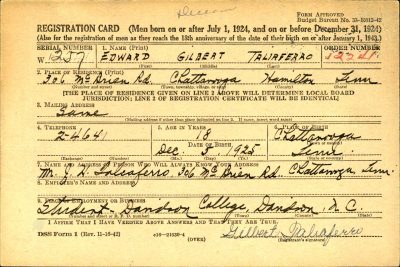 Deceased
FORM APPROVED
Budget Bureau No. 33-R012-42
REGISTRATION CARD (Men born on or after July 1, 1924, and on or before December 31, 1924)
(Also for the registration of men as they reach the 18th anniversary of the date of their birth on or after January 1, 1943.)
SERIAL NUMBER 1. NAME (Print) ORDER NUMBER
W 257 EDWARD GILBERT TALIAFERRO
(First) (Middle) (Last)
2. PLACE OF RESIDENCE (Print)
306 McBrien Rd. Chattanooga Hamilton Tenn
(Number and street) (Town, township, village, or city) (County) (State)
[THE PLACE OF RESIDENCE GIVEN ON LINE 2 ABOVE WILL DETERMINE LOCAL BOARD
JURISDICTION; LINE 2 OF REGISTRATION CERTIFICATE WILL BE IDENTICAL]
3. MAILING ADDRESS
Same
[Mailing address if other than place indicated on line 2. If same, insert word same]
4. TELEPHONE 5. AGE IN YEARS 6. PLACE OF BIRTH
2-4641 18 Chattanooga
DATE OF BIRTH (Town or county)
Dec 5 1925 Tenn.
(Exchange) (Number) (Mo.) (Day) (Yr.) (State or country)
7. NAME AND ADDRESS OF PERSON WHO WILL ALWAYS KNOW YOUR ADDRESS
Taliaferro, 306 McBrien Rd. Chattanooga, Tenn.
8. EMPLOYER'S NAME AND ADDRESS
9. PLACE OF EMPLOYMENT OR BUSINESS
Student - Davidson College, Davidson, N.C.
(Number and street or R. F. D. number) (Town) (County) (State)
I AFFIRM THAT I HAVE VERIFIED ABOVE ANSWERS AND THAT THEY ARE TRUE.
DSS Form 1 (Rev. 11-16-42) 16-21630-4 Gilbert Taliaferro
(OVER) (Registrant's signature)